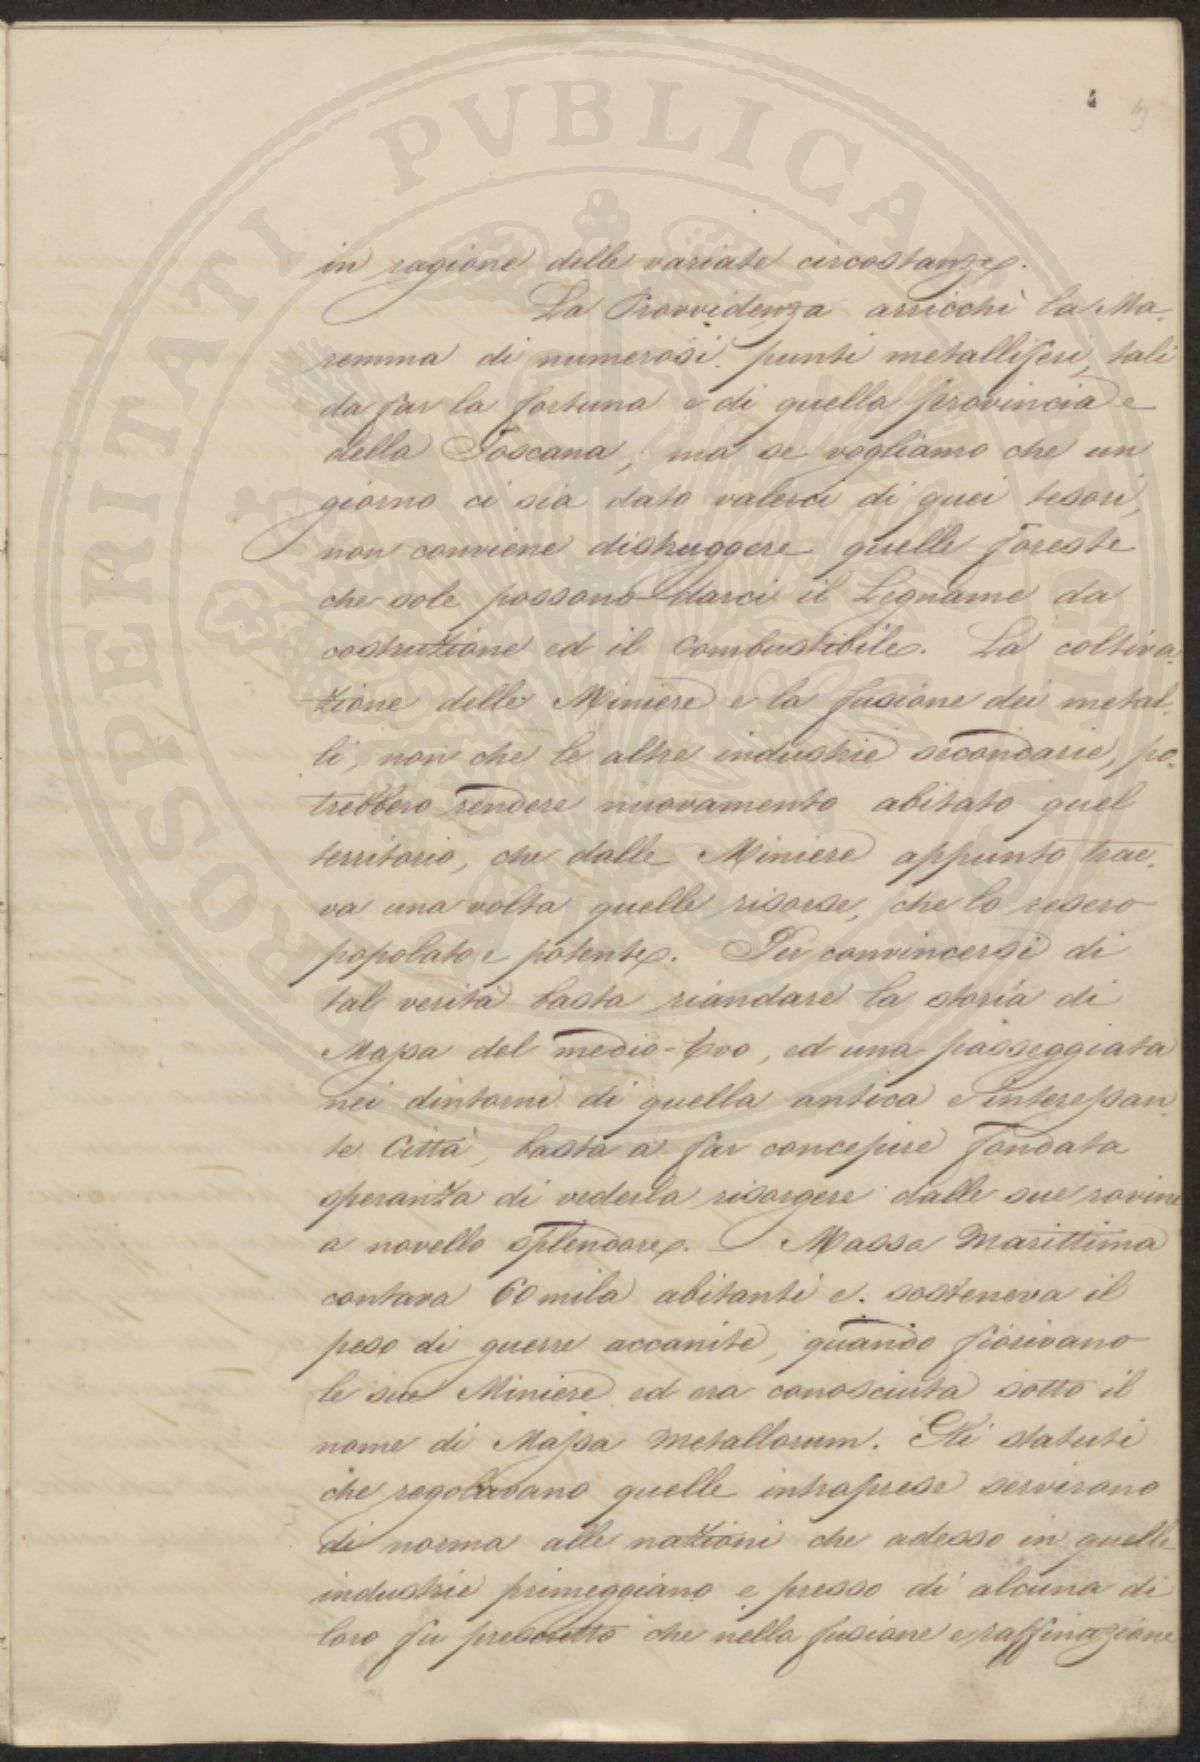 PROSPERITATI PVBLICAE
in ragione delle variate circostanze.
La Provvidenza arricchì la Ma-
remma di numerosi punti metalliferi, tali
da far la fortuna e di quella provincia e
della Toscana; ma se vogliamo che un
giorno ci sia dato valerci di quei tesori,
non conviene distruggere quelle foreste
che sole possono darci il Legname da
costruzione ed il Combustibile. La coltiva-
zione delle Miniere e la fusione dei metal-
li, non che le altre industrie secondarie, po-
trebbero rendere nuovamente abitato quel
territorio, che dalle Miniere appunto trae-
va una volta quelle risorse, che lo resero
popolato e potente. Per convincersi di
tal verità basta riandare la storia di
Massa del medio-Evo, ed una passeggiata
nei dintorni di quella antica e interessan-
te Città, basta a far concepire fondata
speranza di vederla risorgere dalle sue rovine
a novello splendore. Massa Marittima
contava 60 mila abitanti e sosteneva il
peso di guerre accanite, quando fiorivano
le sue Miniere ed era conosciuta sotto il
nome di Massa Metallorum. Gli statuti
che regolavano quelle intraprese servirono
di norma alle nazioni che adesso in quelle
industrie primeggiano e presso di alcuna di
loro fu prescritto che nella fusione e raffinazione